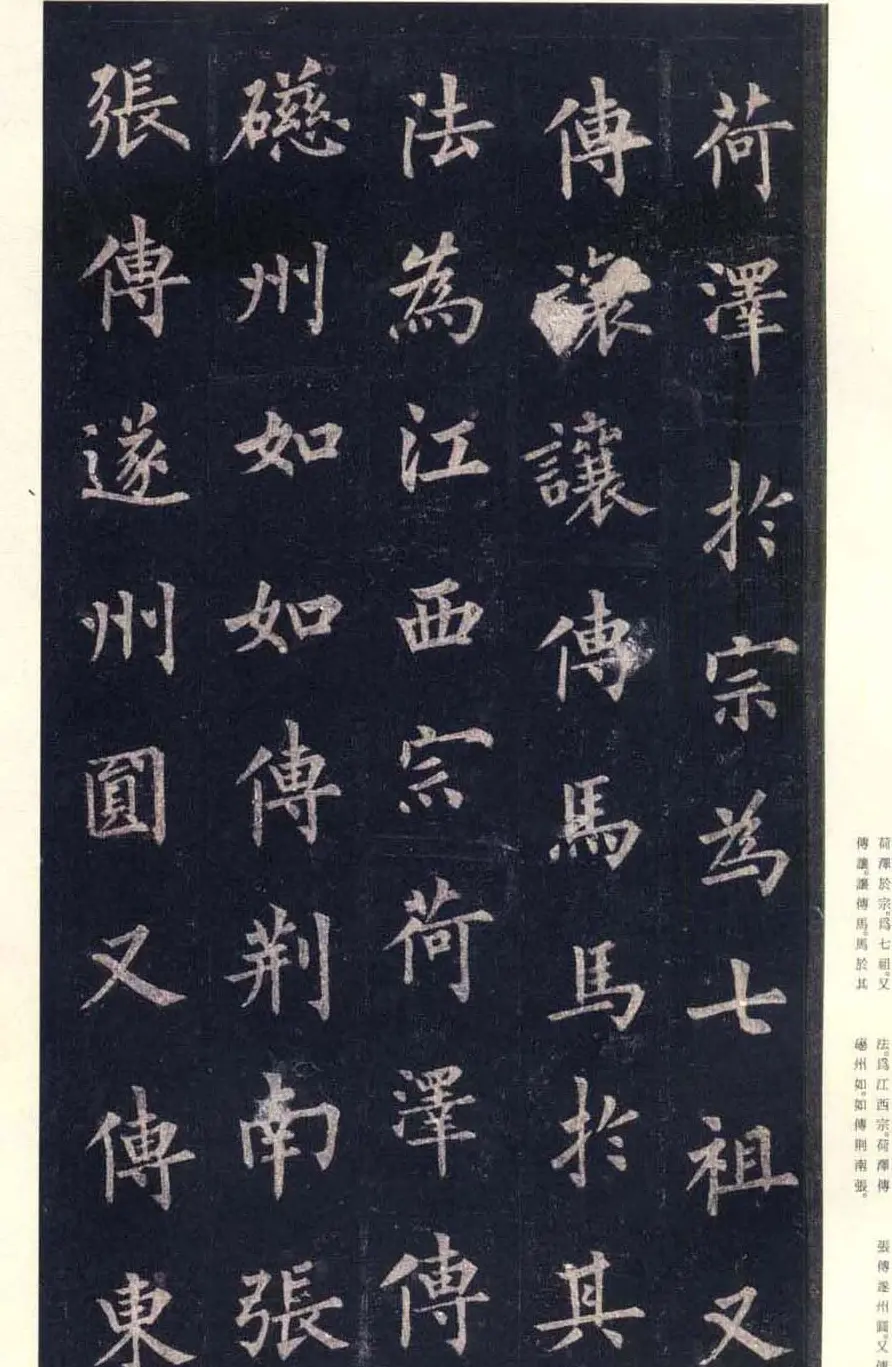 荷澤於宗為七祖又
傳讓讓傳馬馬於其
法為江西宗荷澤傳
礠州如如傳荆南張
張傳遂州圓又傳東
荷澤於宗爲七祖。又
傳讓。讓傳馬。馬於其
法。爲江西宗。荷澤傳
礠州如。如傳荆南張。
張傳遂州圓又